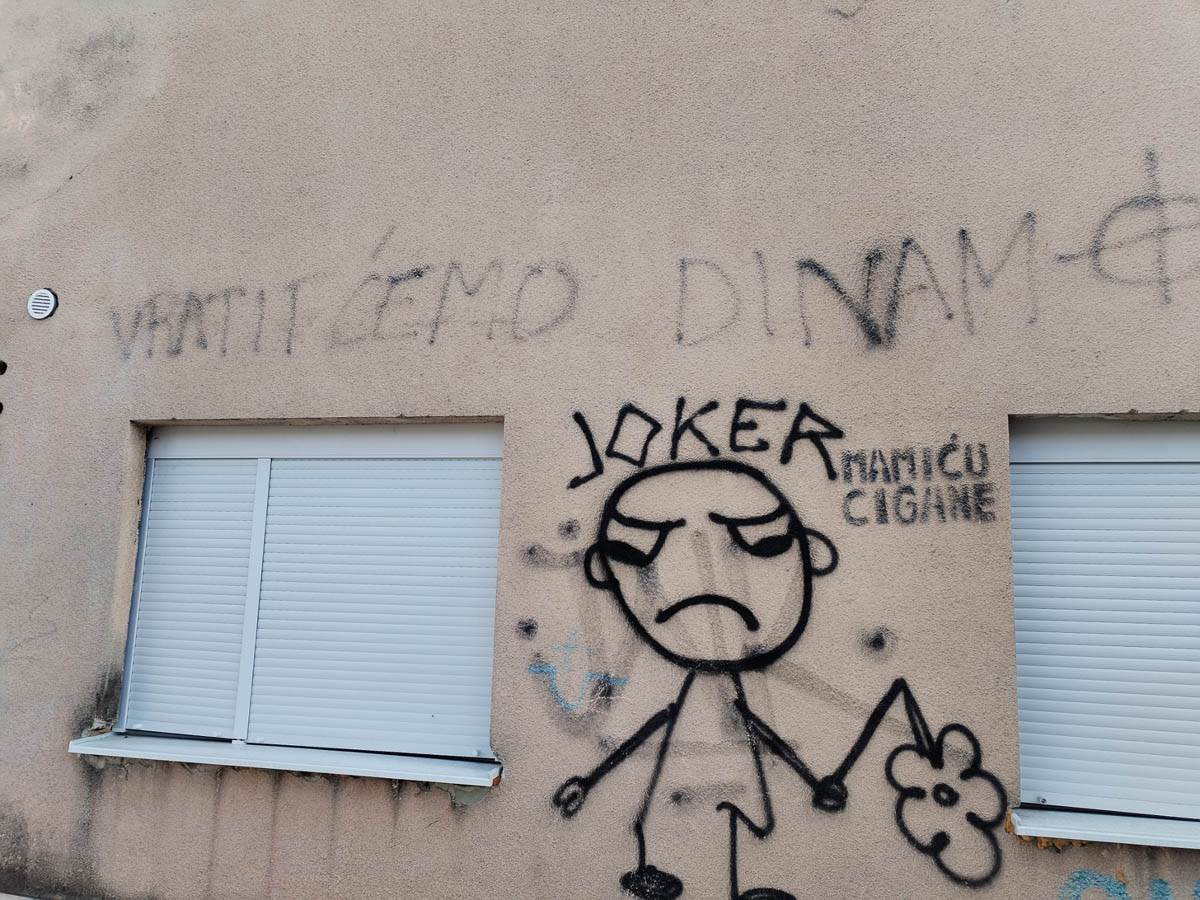 VRATIT ĆEMO DINAMO
JOKER
MAMIĆU
CIGANE